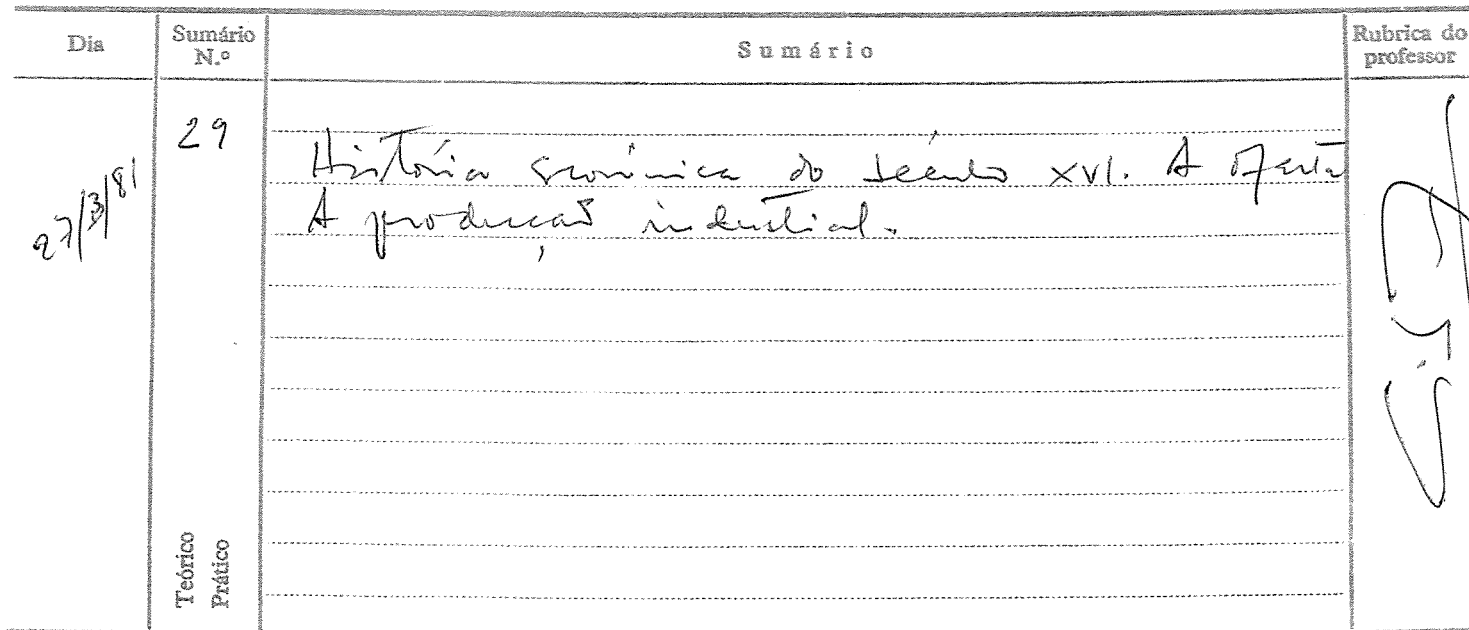 Dia
Sumário N.º
Sumário
Rubrica do professor
27/3/81
29
História económica do século XVI. A oferta
A produção industrial.
Teórico
Prático